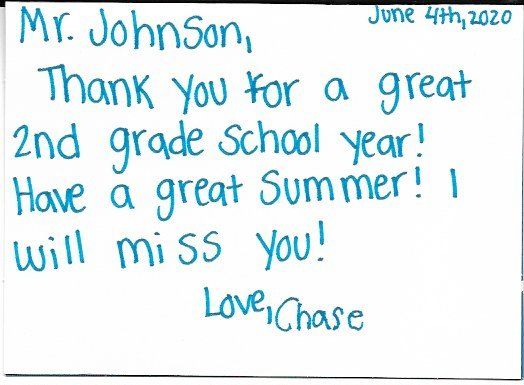 June 4th, 2020
Mr. Johnson,
Thank you for a great
2nd grade school year!
Have a great Summer! I
will miss you!
Love, Chase